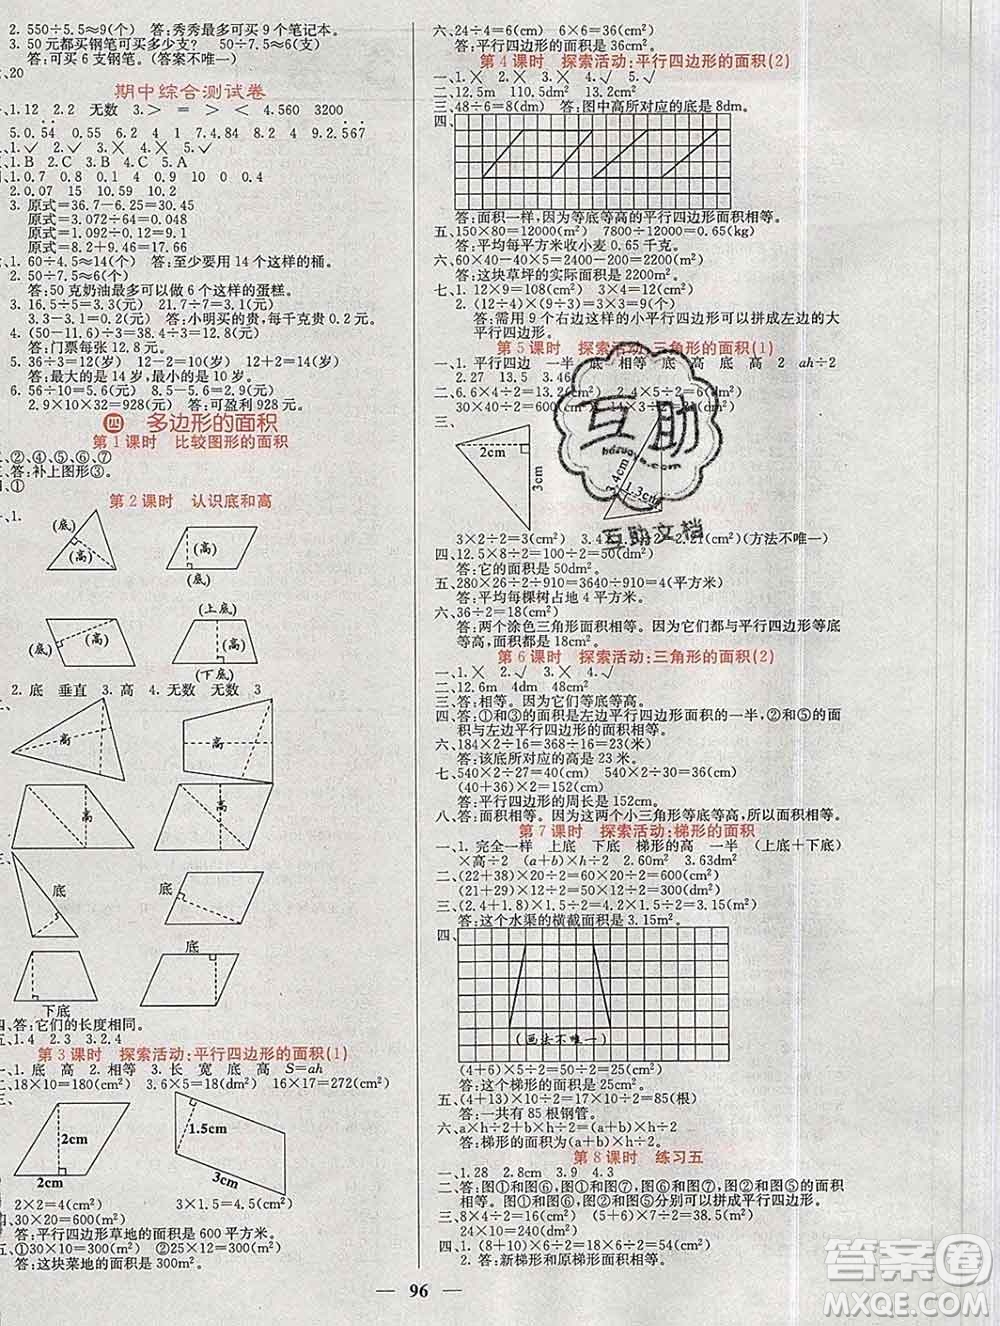 2. 550÷5.5≈9(个) 答:秀秀用买9个笔记本。
3. 50元都买钢笔可买多少支? 50÷7.5≈6(支)
答:可买6支钢笔。(答案不唯一)
20
期中综合测试卷
1.12 2.2 无数 3.> = > < 4.560 3200
2.√ 3.× 4.× 5.√
1.B 2.C 3.B 4.C 5.A
1.0.7 0.8 0.1 4 0.9 1 0 0 4
2.0.07 15 10.59 10.2
3. 原式=36.7-6.25=30.45
原式=3.072÷64=0.048
原式=1.092÷0.12=9.1
原式=8.2+9.46=17.66
1.60÷4.5≈14(个) 答:至少要用14个这样的桶。
2. 50÷7.5≈6(个)
答:50克奶油最多可以做6个这样的蛋糕。
3. 16.5÷5=3.3(元) 21.7÷7=3.1(元)
3.3-3.1=0.2(元) 答:小明买的贵,每千克贵0.2元。
4. (50-11.6)÷3=12.8(元)
答:门票每张12.8元。
5. 36÷3=12(岁) 12-2=10(岁) 12+2=14(岁)
答:最大的是14岁,最小的是10岁。
6. 56÷10=5.6(元) 8.5-5.6=2.9(元)
2.9×10×32=928(元) 答:可盈利928元。
四 多边形的面积
第1课时 比较图形的面积
、②、④、⑤、⑥、⑦
三、答:补上图形③。
四、①
第2课时 认识底和高
一、1.
(底) (高)
(高) (底)
(底) (高)
(上底) (高) (下底)
2. 底 垂直 3. 高 4. 无数 无数 3
高 高
高 高
三、
底 底
底 下底
四、答:它们的长度相同。
五、1.4 2.3 3.2.4
第3课时 探索活动:平行四边形的面积(1)
一、1. 底 高 2. 相等 3. 长 宽 底 高 S=ah
二、18×10=180(cm²) 3.6×5=18(dm²) 16×17=272(cm²)
三、
2cm 2cm
1.5cm 3cm
2×2=4(cm²) 3×1.5=4.5(cm²)
四、30×20=600(m²)
答:平行四边形草地的面积是600平方米。
五、①30×10=300(m²) ②25×12=300(m²)
答:这块菜地的面积是300m²。
六、24÷4=6(cm) 6×6=36(cm²)
答:平行四边形的面积是36cm²。
第4课时 探索活动:平行四边形的面积(2)
一、1.× 2.× 3.× 4.√
二、12.5m 110.5dm² 13.2m²
三、48÷6=8(dm) 答:图中高所对应的底是8dm。
四、
答:面积一样,因为等底等高的平行四边形面积相等。
五、150×80=12000(m²) 7800÷12000=0.65(kg)
答:平均每平方米收小麦0.65千克。
六、60×40-40×5=2400-200=2200(m²)
答:这块草坪的实际面积是2200m²。
七、1. 12×9=108(m²) 3×4=12(m²)
2. (12÷4)×(9÷3)=3×3=9(个)
答:需用9个右边这样的小平行四边形可以拼成左边的大
平行四边形。
第5课时 探索活动:三角形的面积(1)
一、1. 平行四边 一半 底 相等 底 高 底 高 2 ah÷2
2. 27 13.5 3.46
三、
2cm 3cm
3.4cm 1.3cm
3×2÷2=3(cm²)
四、12.5×8÷2=100÷2=50(dm²)
答:它的面积是50dm²。
五、280×26÷2÷910=3640÷910=4(平方米)
答:平均每棵树占地4平方米。
六、36÷2=18(cm²)
答:两个涂色三角形面积相等。因为它们都与平行四边形等底
等高,面积都是18cm²。
第6课时 探索活动:三角形的面积(2)
一、1.× 2.√ 3.× 4.√
二、12.6m 4dm 48cm²
三、答:相等。因为它们等底等高。
四、答:①和③的面积是左边平行四边形面积的一半,②和⑤的面
积与左边平行四边形面积相等。
六、184×2÷16=368÷16=23(米)
答:该底所对应的高是23米。
七、540×2÷27=40(cm) 540×2÷30=36(cm)
(40+36)×2=152(cm)
答:平行四边形的周长是152cm。
八、答:面积相等。因为这两个小三角形等底等高,所以面积相等。
第7课时 探索活动:梯形的面积
一、1. 完全一样 上底 下底 梯形的高 一半 (上底+下底)
×高÷2 (a+b)×h÷2 2.64cm² 3.63dm²
二、(22+38)×20÷2=60×20÷2=600(m²)
(21+29)×12÷2=50×12÷2=300(cm²)
三、(2.4+1.8)×1.5÷2=4.2×1.5÷2=3.15(m²)
答:这个水渠的横截面积是3.15m²。
四、
(画法不唯一)
(4+6)×5÷2=10×5÷2=50÷2=25(cm²)
答:这个梯形的面积是25cm²。
五、(4+13)×10÷2=17×10÷2=85(根)
答:一共有85根钢管。
六、a×h÷2+b×h÷2=(a+b)×h÷2
答:梯形的面积为(a+b)×h÷2。
第8课时 练习五
一、1.28 2.8cm 3.9 4.3
二、答:图①与图⑥、图②与图⑦、图⑥与图⑦分别可以拼成平行四边形。
三、8×4÷2=16(cm²) (5+6)×7÷2=38.5(m²)
24×10=240(dm²)
四、1. (8+10)×6÷2=18×6÷2=54(cm²)
2. 答:新梯形和原梯形面积相等。
96
互助
hdzuoye.com
互助文档
答案圈
MXQE.COM